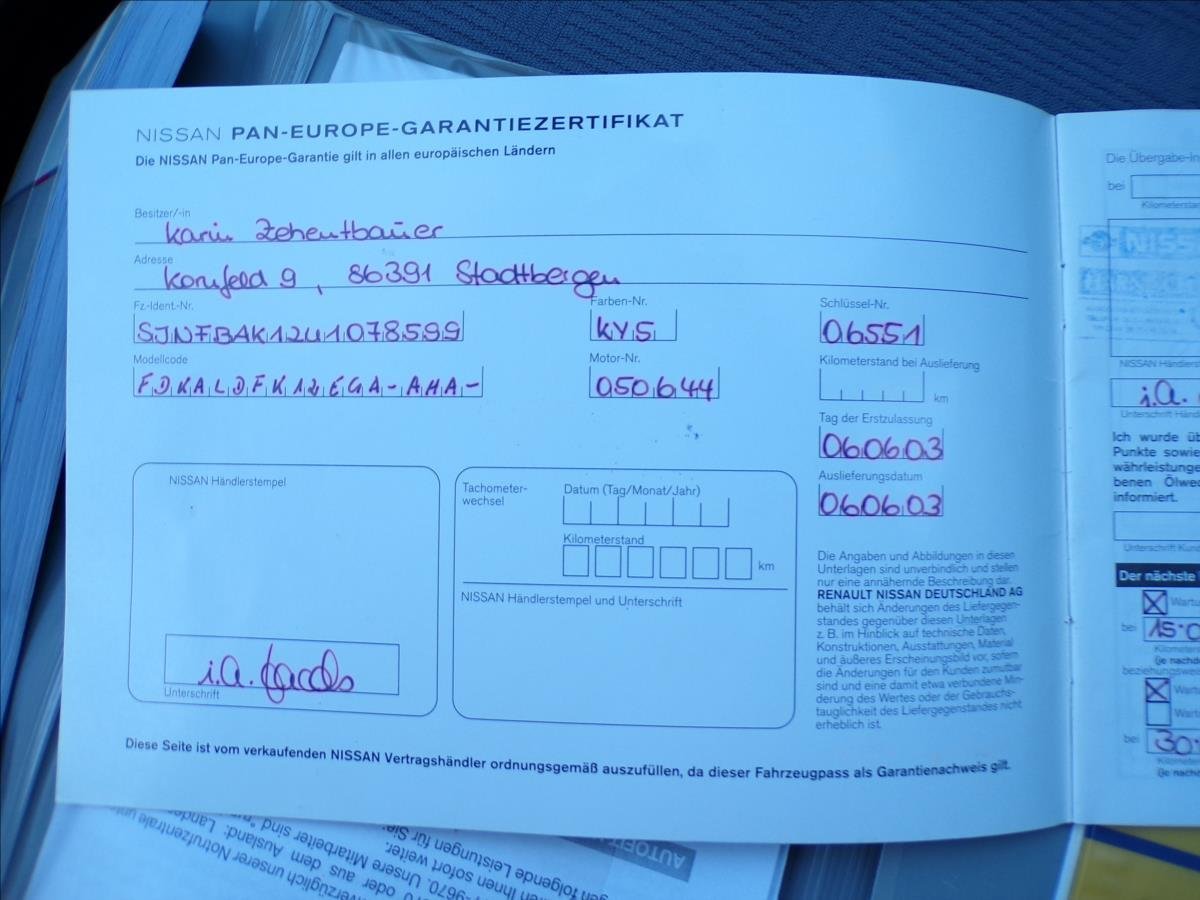 NISSAN PAN-EUROPE-GARANTIEZERTIFIKAT
Die NISSAN Pan-Europe-Garantie gilt in allen europäischen Ländern
Besitzer/-in
Karin Zehentbauer
Adresse
Kornfeld 9, 86391 Stadtbergen
Fz.-Ident.-Nr.
SJNFBAK12U1078599
Farben-Nr.
KY5
Schlüssel-Nr.
06551
Modellcode
FDKALDFK12EGA-AHA-
Motor-Nr.
050644
Kilometerstand bei Auslieferung
km
Tag der Erstzulassung
060603
Auslieferungsdatum
060603
NISSAN Händlerstempel
i.A.
Unterschrift
Tachometer-
wechsel
Datum (Tag/Monat/Jahr)
Kilometerstand
km
NISSAN Händlerstempel und Unterschrift
Die Angaben und Abbildungen in diesen
Unterlagen sind unverbindlich und stellen
nur eine annähernde Beschreibung dar.
RENAULT NISSAN DEUTSCHLAND AG
behält sich Änderungen des Liefergegen-
standes gegenüber diesen Unterlagen
z. B. im Hinblick auf technische Daten,
Konstruktionen, Ausstattungen, Material
und äußeres Erscheinungsbild vor, sofern
die Änderungen für den Kunden zumutbar
sind und eine damit etwa verbundene Min-
derung des Wertes oder der Gebrauchs-
tauglichkeit des Liefergegenstandes nicht
erheblich ist.
Diese Seite ist vom verkaufenden NISSAN Vertragshändler ordnungsgemäß auszufüllen, da dieser Fahrzeugpass als Garantienachweis gilt.
Die Übergabe-In
bei
Kilometerstan
NISS
NISSAN Händlerst
i.A.
Unterschrift Händ
Ich wurde üb
Punkte sowie
währleistunge
benen Ölwec
informiert.
Unterschrift Kund
Der nächste
Wartu
bei 15.0
Kilometers
(je nachd
beziehungswei
Wartu
Wartu
bei 30.
Kilometers
(je nachd
AUTOFI
gen folgende Leistungen für Sie:
n Ihnen sofort weiter.
-9670. Unsere Mitarbeiter sind
0 oder aus dem Ausland: Landes
verzüglich unserer Notrufzentrale unte